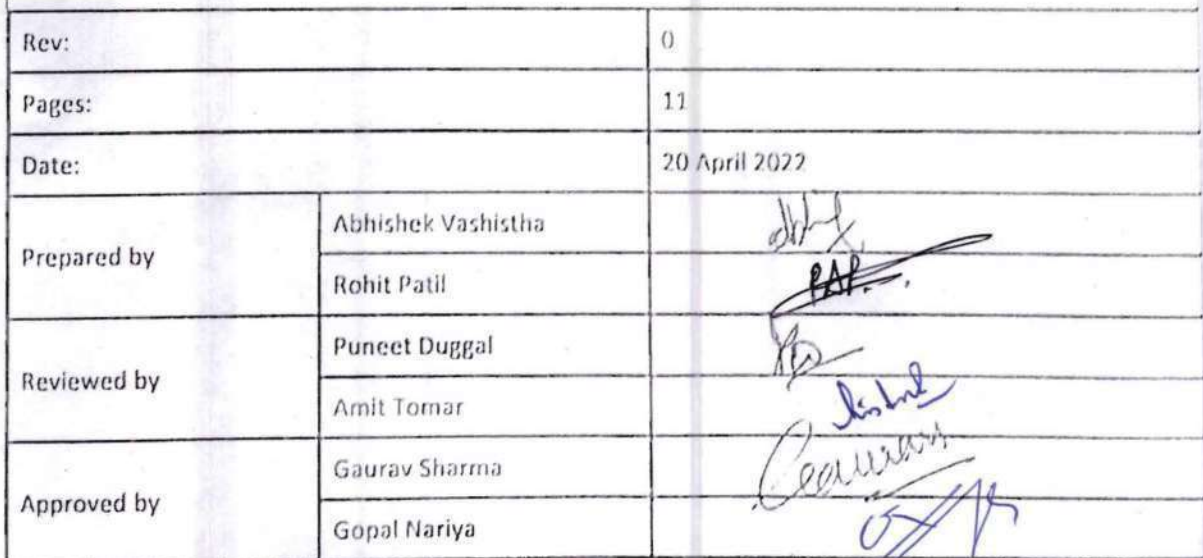 Rev: 0
Pages: 11
Date: 20 April 2022
Prepared by
Abhishek Vashistha
Rohit Patil
PAP...
Reviewed by
Puneet Duggal
Amit Tomar
Approved by
Gaurav Sharma
Gopal Nariya